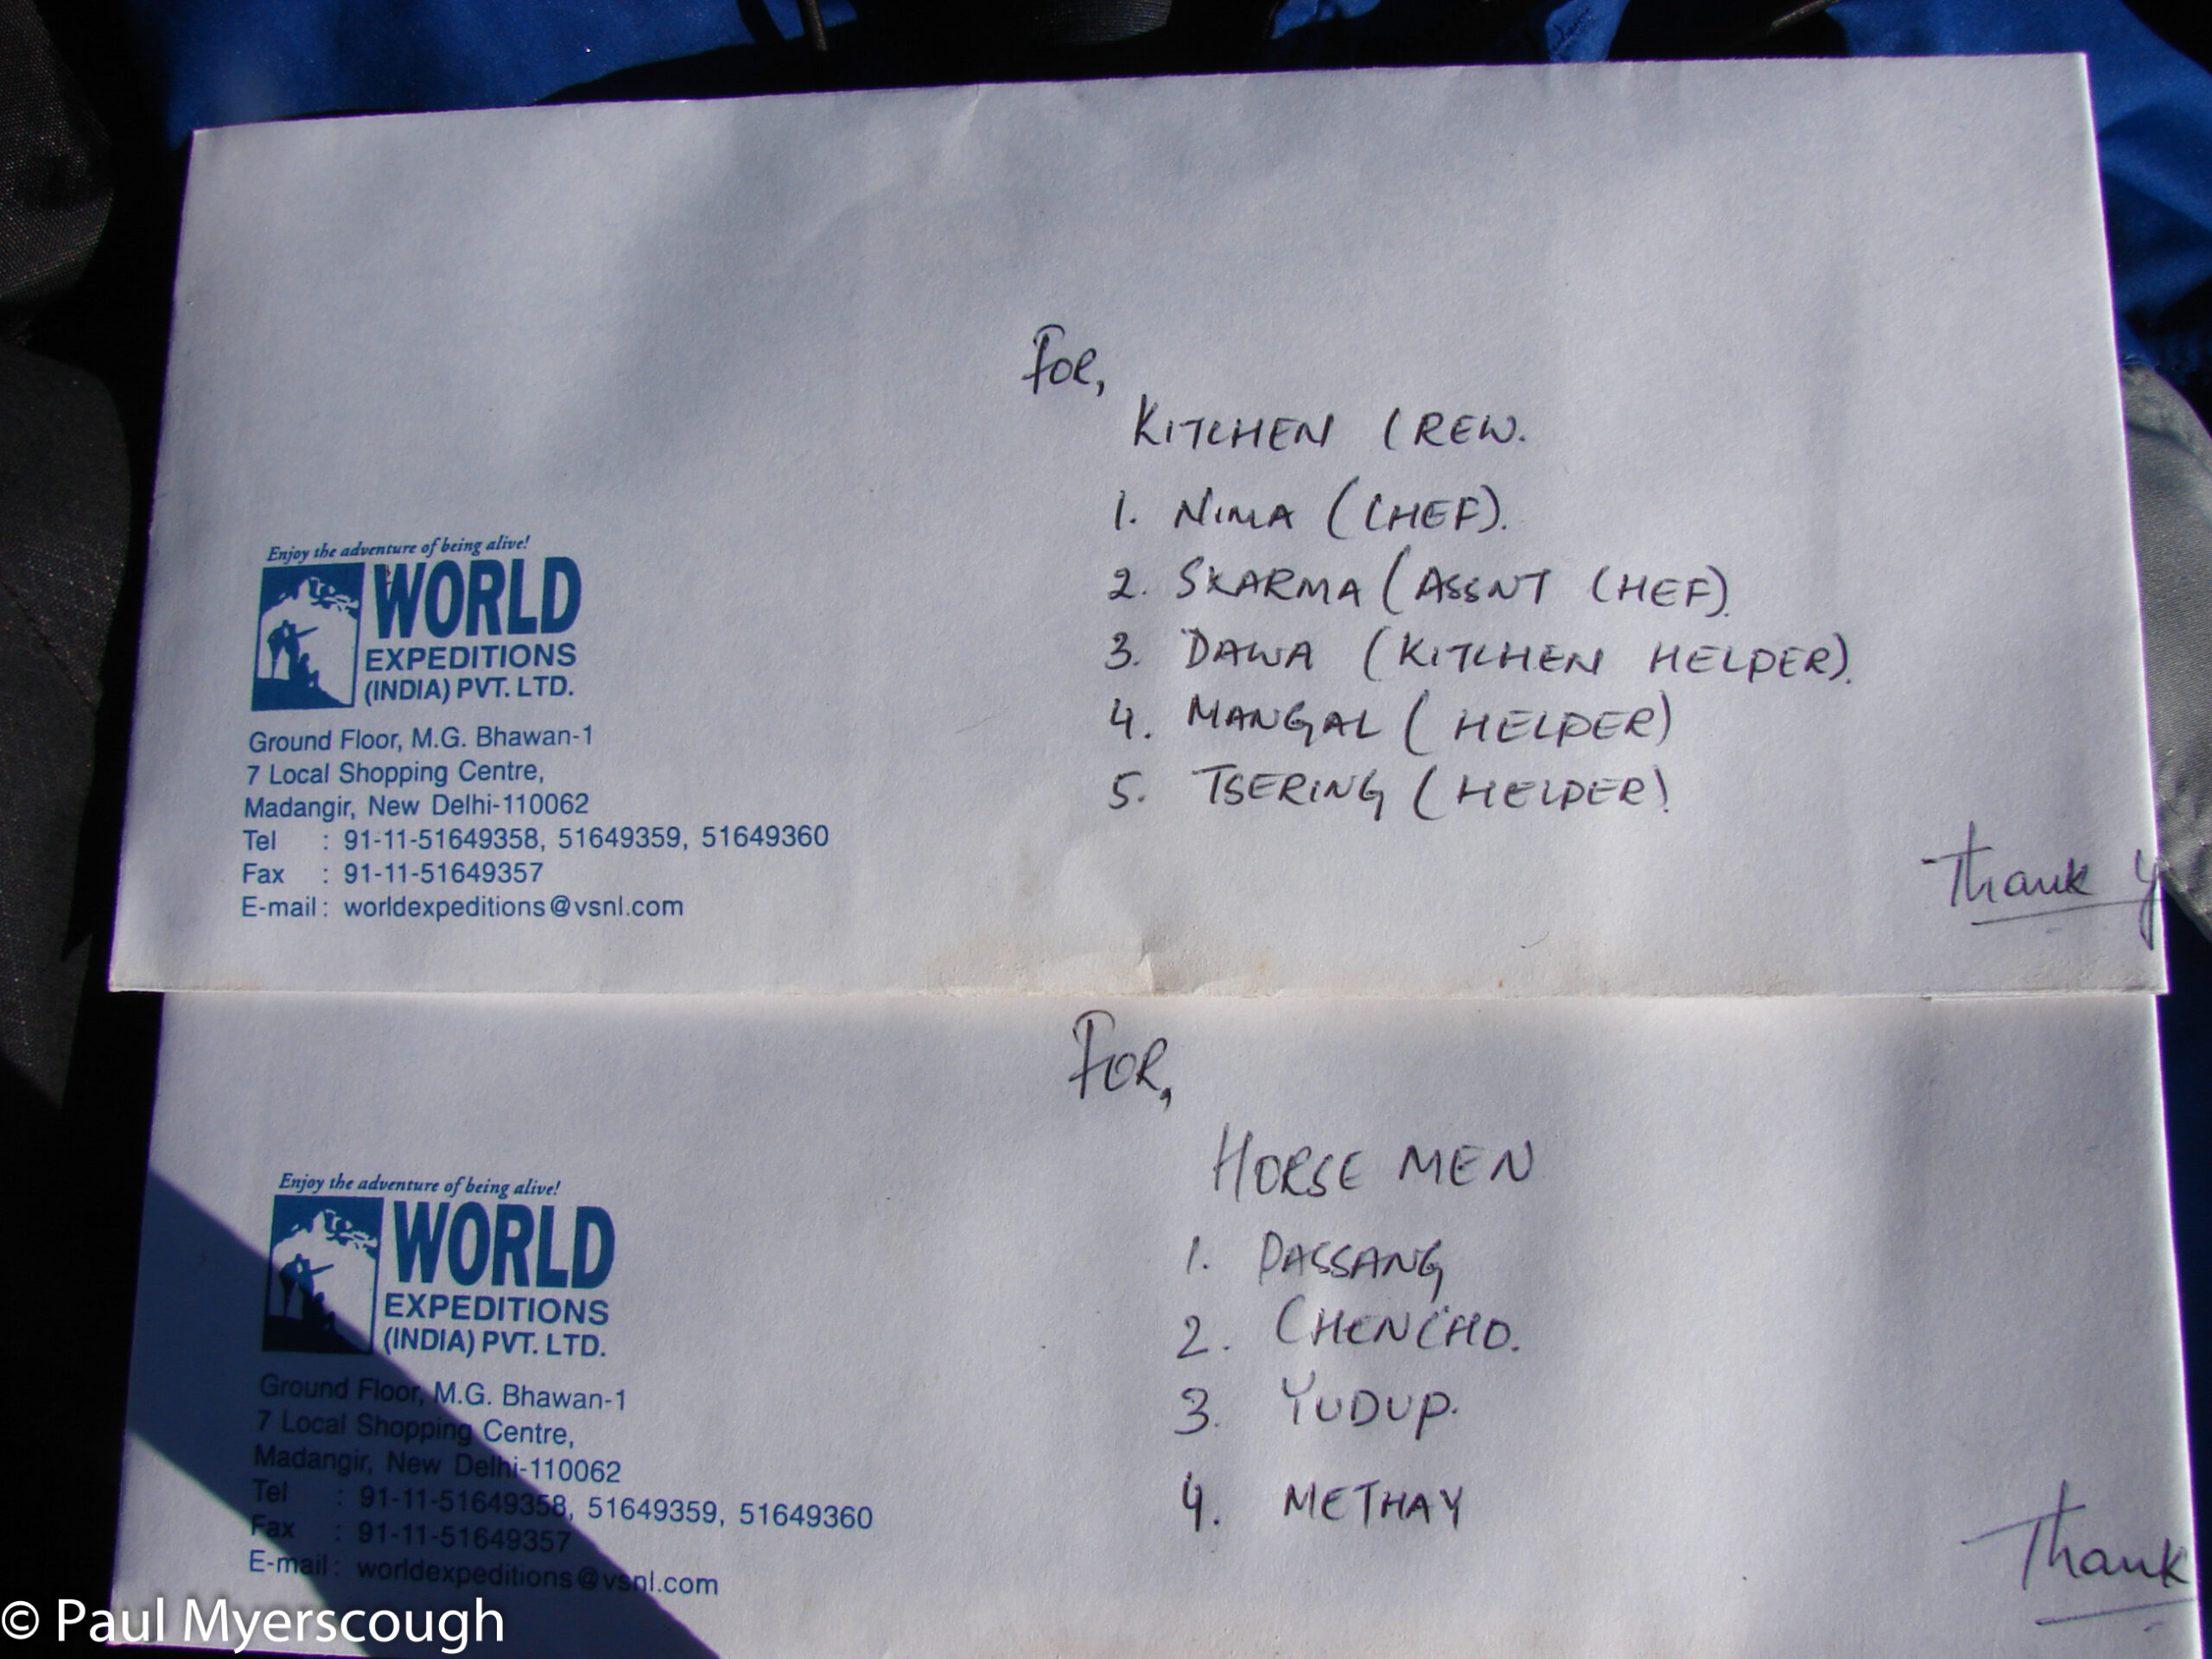 For,
KITCHEN CREW.
1. NIMA (CHEF).
2. SKARMA (ASSNT CHEF).
3. DAWA (KITCHEN HELPER).
4. MANGAL (HELPER)
5. TSERING (HELPER)
Enjoy the adventure of being alive!
WORLD
EXPEDITIONS
(INDIA) PVT. LTD.
Ground Floor, M.G. Bhawan-1
7 Local Shopping Centre,
Madangir, New Delhi-110062
Tel : 91-11-51649358, 51649359, 51649360
Fax : 91-11-51649357
E-mail : worldexpeditions@vsnl.com
Thank y
FOR,
HORSE MEN
1. PASSANG
2. CHENCHO.
3. YUDUP.
4. METHAY
Enjoy the adventure of being alive!
WORLD
EXPEDITIONS
(INDIA) PVT. LTD.
Ground Floor, M.G. Bhawan-1
7 Local Shopping Centre,
Madangir, New Delhi-110062
Tel : 91-11-51649358, 51649359, 51649360
Fax : 91-11-51649357
E-mail : worldexpeditions@vsnl.com
Thank
© Paul Myerscough